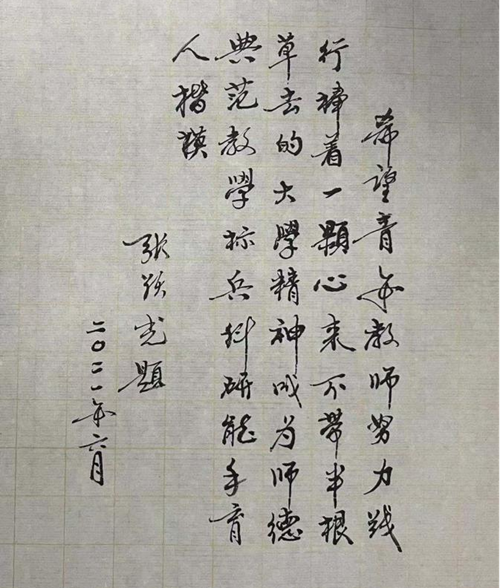 希望青年教师努力践
行捧着一颗心来不带半根
草去的大学精神成为师德
典范教学标兵科研能手育
人楷模
张跃光题
二〇二一年六月